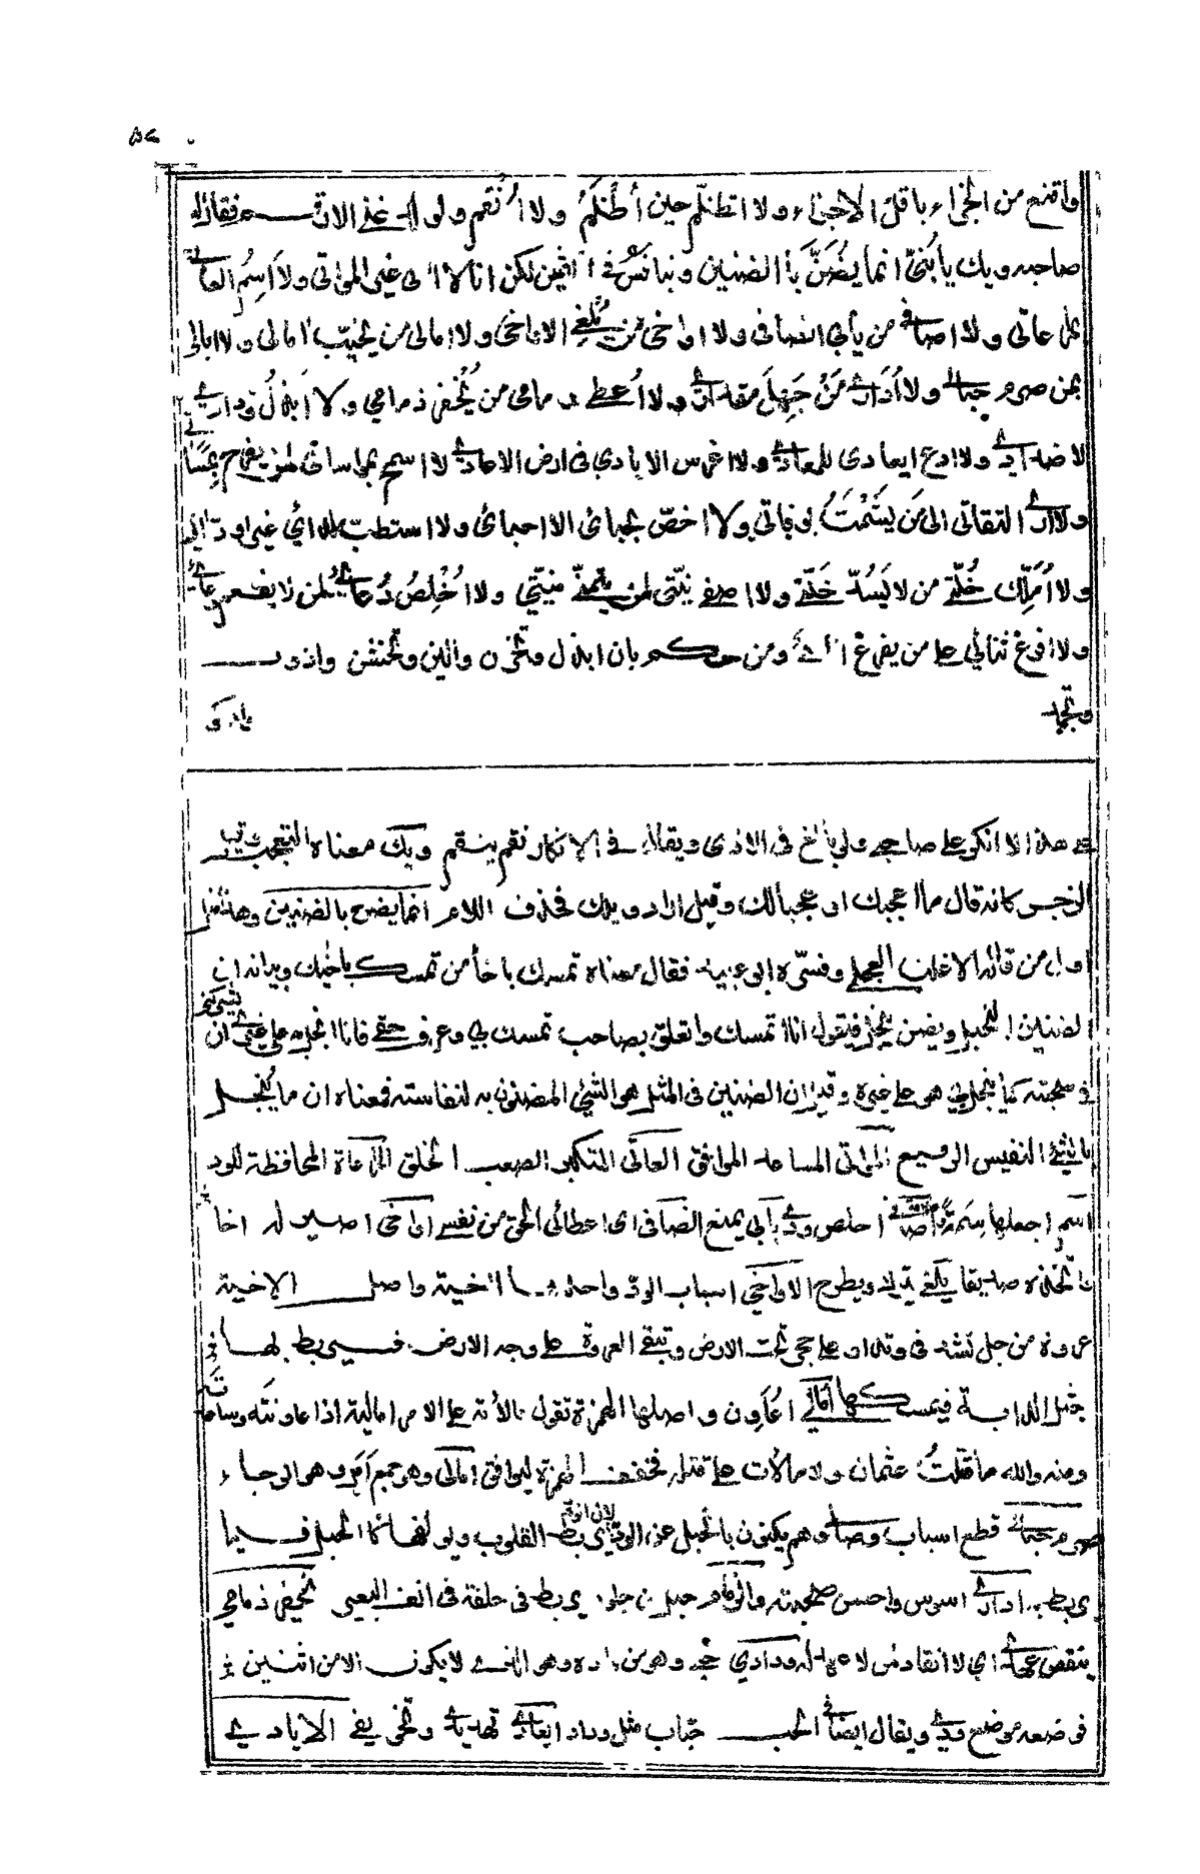 واقنع من الجزاء باقل الاجزاء ولا اتظلّم حين أُظلَمُ ولا اُنقم ولو لدغني الارقم فقال له
صاحبه ويك يا بُنيّ انما يُضَنّ بالضنين وينافس في الثمين لكن انا لا اٰتي غير المواتي ولا اَسِمُ العاتي
بمراعاتي ولا اصافي من يأبى انصافي ولا اواخي من يُلغي الاواخي ولا امالي من يخيّب اٰمالي ولا ابالي
بمن صرم حبالي ولا اُداري مَنْ جَهِلَ مقداري ولا اُعطي زمامي من يُخْفِر ذمامي ولا ابذلُ ودادي
لاضدادي ولا ادع ايعادي للمعادي ولا اغرس الايادي في ارض الاعادي ولا اسمح بمواساتي لمن يفرح بمساآتي
ولا ارى التفاتي الى مَن يَشْمَتُ بوفاتي ولا اخصّ بحبائي الا احبائي ولا استطبّ لدائي غير اودّائي
ولا اُملّك خُلّتي من لا يَسُدّ خَلّتي ولا اصفي نيّتي لمن يتمنّى منيّتي ولا اُخْلِصُ دُعائي لمن لا يفعم وعائي
ولا افرغ ثنائي على من يفرغ انائي ومن حكم بان ابذل وتخزن والين وتخشن واذوب
وتجمد
على هذا لا انكر على صاحبي ولو بالغ في الاذى ويقال في الانكار نقم ينقم ويك معناه التعجب
الزجر كانه قال ما اعجبك او عجبا لك وقيل اراد ويلك فحذف اللام انما يضن بالضنين وهذا مثل
اول من قاله الاغلب العجلي وفسّره ابو عبيد فقال معناه تمسك باخاء من تمسك باخائك ويراد ان
الضنين البخيل ويضن يبخل فيقول انا اتمسك واتعلق بصاحب تمسك بي وعرف حقي فانا ابخل به على غيري ان
في صحبته كما يبخل بي هو على غيره وقيل ان الضنين في المثل هو الشيء المضنون به لنفاسته فمعناه ان ما يبخل
بالشيء النفيس الرفيع المواتي المساعد الموافق العاتي المتكبر الصعب الخلق المراعاة المحافظة للود
اسم اجعلها سمة اصافي اخلص ودي يأبى يمنع انصافي اي اعطائي الحق من نفسه اواخي اصير له اخا
فاتخذه صديقا يلغي يترك ويطرح الاواخي اسباب الود واحدها اٰخية واصل الاخية
عروة من حبل تشد في وتد او على حجر تحت الارض وتبقى العروة على وجه الارض فيربط بها
حبل الدابة فيمسكها امالي اعاون واصلها الهمزة تقول مالأته على الامر اماليه اذا عاونته وساعدته
ومنه والله ما قتلت عثمان ولا مالأت على قتله فخفف الهمزة ليوافق اٰمالي وهو جمع امل وهو الرجاء
صرم حبالي قطع اسباب وصالي وهم يكنون بالحبل عن الود لان الود يربط القلوب ويولفها كما الحبل فيما
يربط به اداري اسوس واحسن صحبته والزمام حبل من جلد يربط في حلقة في انف البعير يخفر ذمامي
ينقض عهدي اي لا انقاد لمن لا عهد له ودادي حبي وهو من واده وهو المفاعلة لا يكون الا من اثنين
فوضعه موضع ودي ويقال ايضا في الحب حباب مثل وداد ايعادي تهديدي وتخويفي الايادي